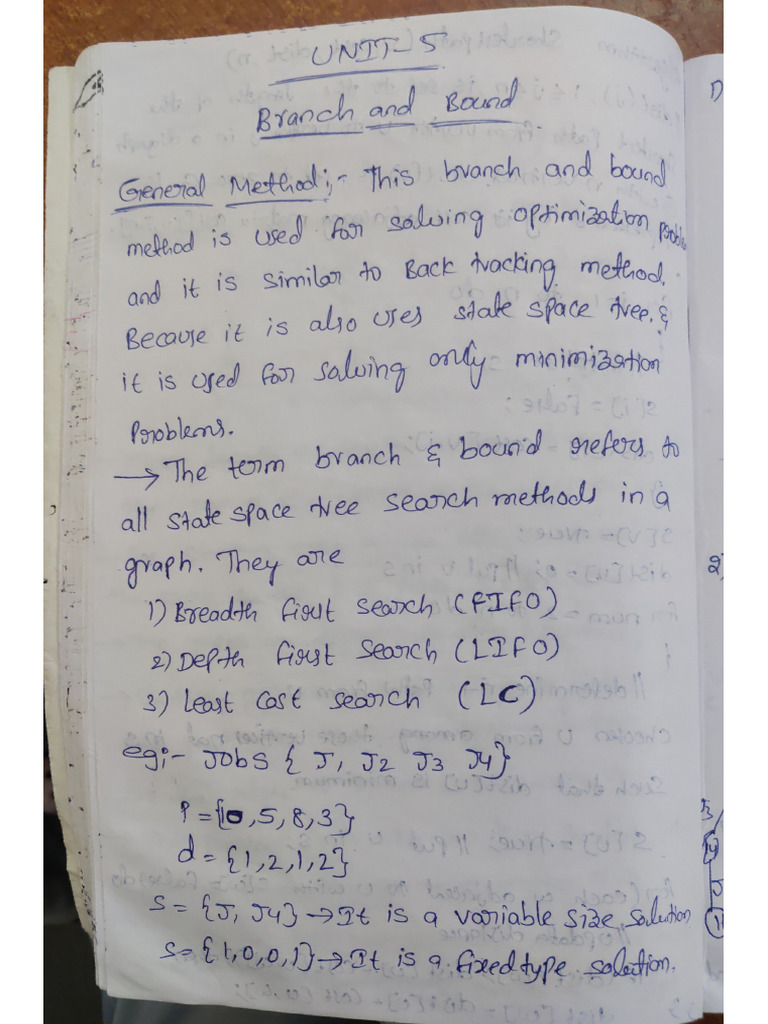 UNIT-5
Branch and Bound
General Method:- This branch and bound
method is used for solving optimization problem
and it is similar to Back tracking method.
Because it is also uses state space tree. &
it is used for solving only minimization
Problems.
→ The term branch & bound refers to
all state space tree search methods in a
graph. They are
1) Breadth first search (FIFO)
2) Depth first search (LIFO)
3) Least cost search (LC)
eg:- JObS { J1 J2 J3 J4}
P = {10, 5, 8, 3}
d = {1, 2, 1, 2}
S = {J1 J4} → It is a variable size solution
S = {1, 0, 0, 1} → It is a fixed type solution.